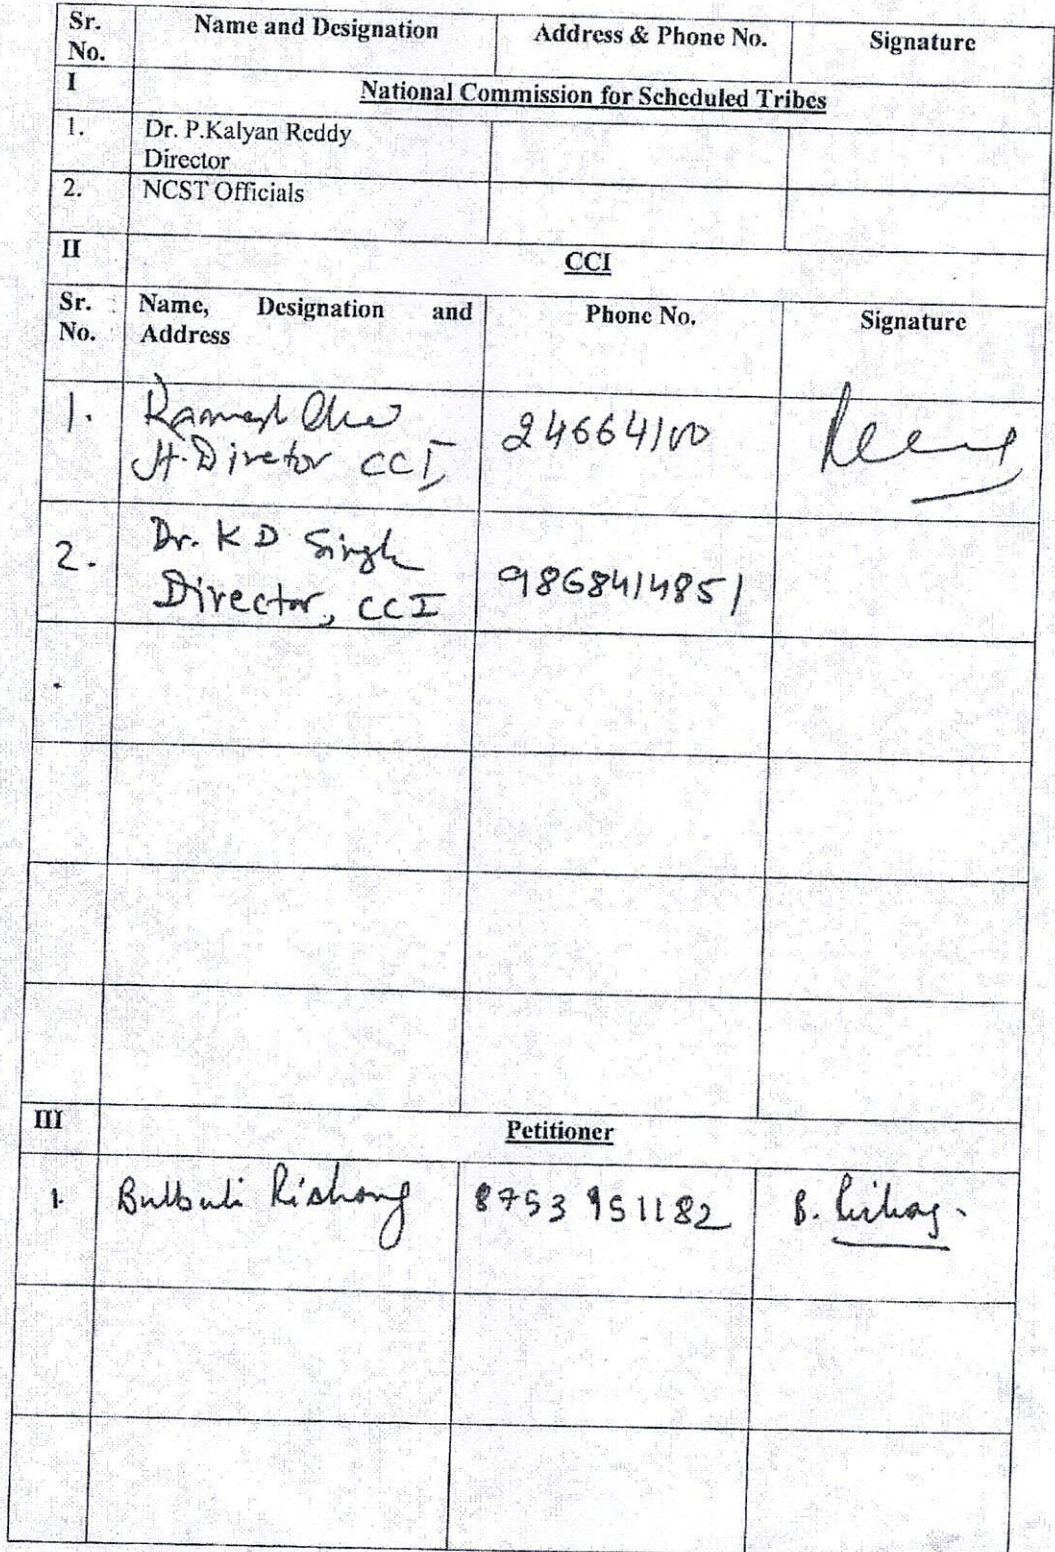 Sr. No. Name and Designation Address & Phone No. Signature
I National Commission for Scheduled Tribes
1. Dr. P.Kalyan Reddy
Director
2. NCST Officials
II CCI
Sr. No. Name, Designation and Address Phone No. Signature
1. Ramesh 24664100
Jt. Diretor CCI,
2. Dr. K D Singh 9868414851
Director, CCI
III Petitioner
1. Bulbuli Rishong 8753951182 B. Rishong.